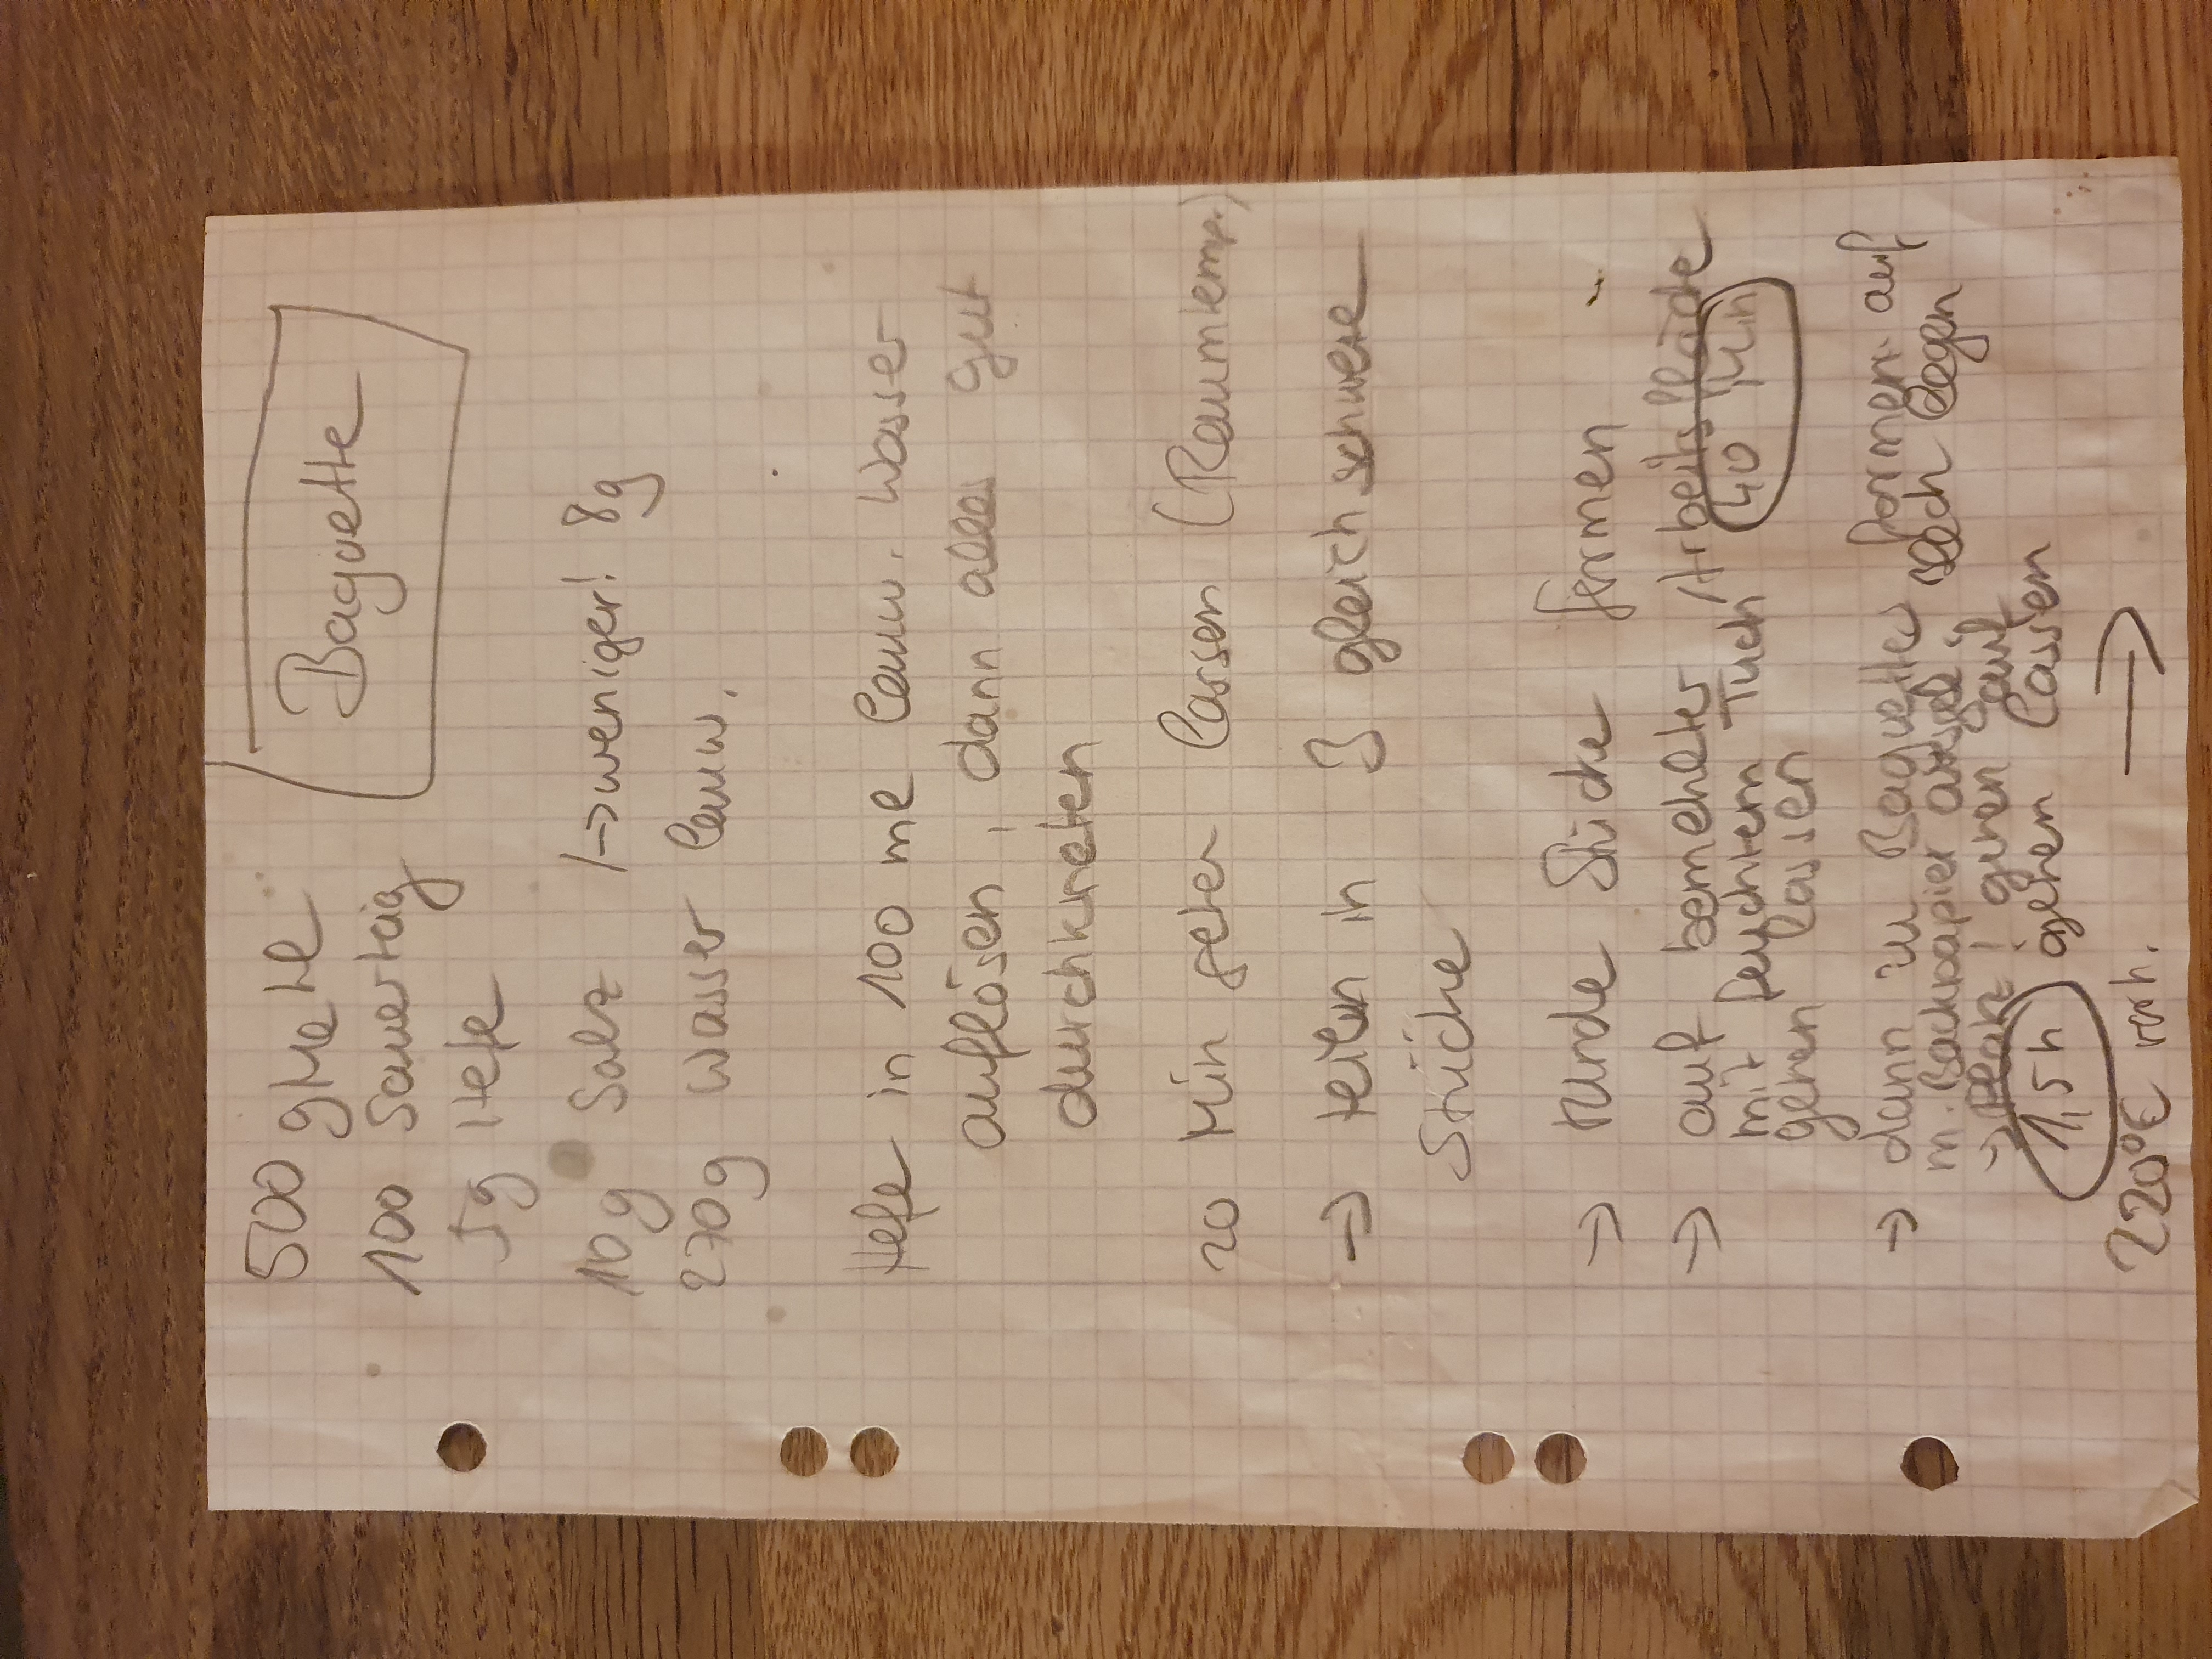 Baguette
500 g Mehl
100 Sauerteig
5g Hefe
10g Salz |→ weniger! 8g
270g Wasser lauw.
Hefe in 100 ml lauw. Wasser
auflösen, dann alles gut
durchkneten
20 Min gehen lassen (Raumtemp.)
→ teilen in 3 gleich schwere
Stücke
→ runde Stücke formen
→ auf bemehlter Arbeitsfläche
mit feuchtem Tuch 40 Min
gehen lassen
→ dann zu Baguette formen auf
m. Backpapier ausgel. Blech legen
→ Platz! gehen
1,5 h gehen lassen
220°C vorh. →